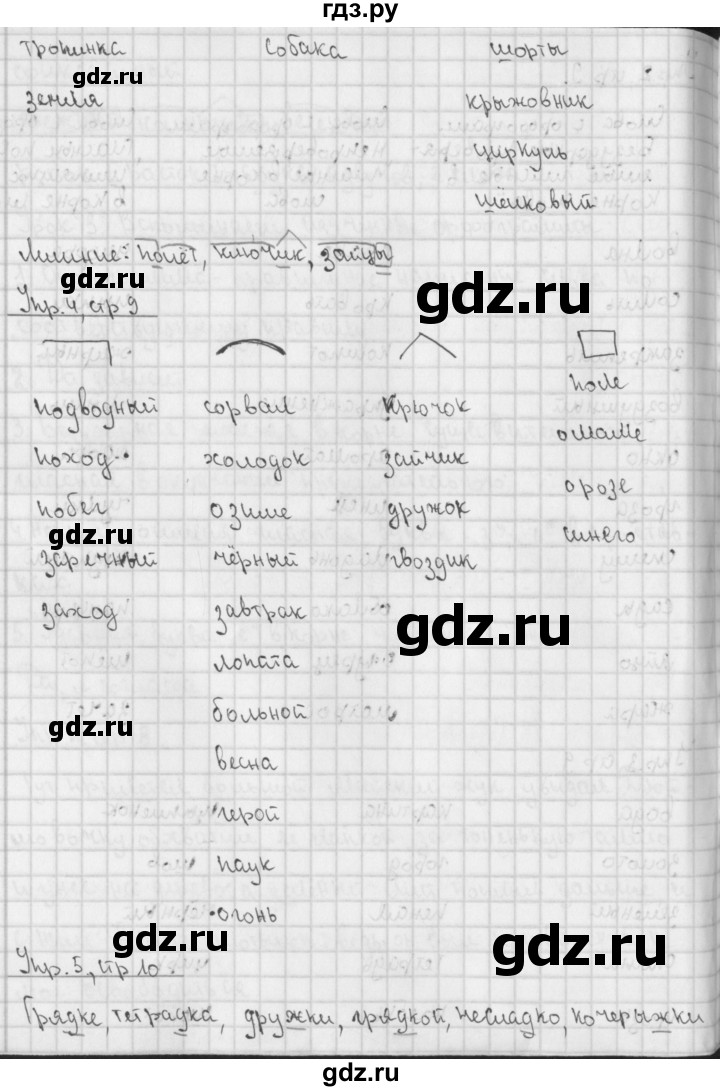 гдз.ру
тропинка собака шорты
gdz.ru
земля крыжовник
циркуль
gdz.ru
шёлковый
Лишние: полёт, ключик, зайцы
Упр. 4, стр 9
gdz.ru gdz.ru
подводный сорвал крючок поле
поход холодок зайчик о маме
побег озиме дружок о розе
gdz.ru
заречный чёрный гвоздик синего
заход завтрак
gdz.ru
лопата
больной
gdz.ru
весна
герой
паук
огонь
gdz.ru gdz.ru
Упр. 5, стр 10.
Грядке, тетрадка, дружки, грядкой, несладко, кочерыжки
gdz.ru gdz.ru